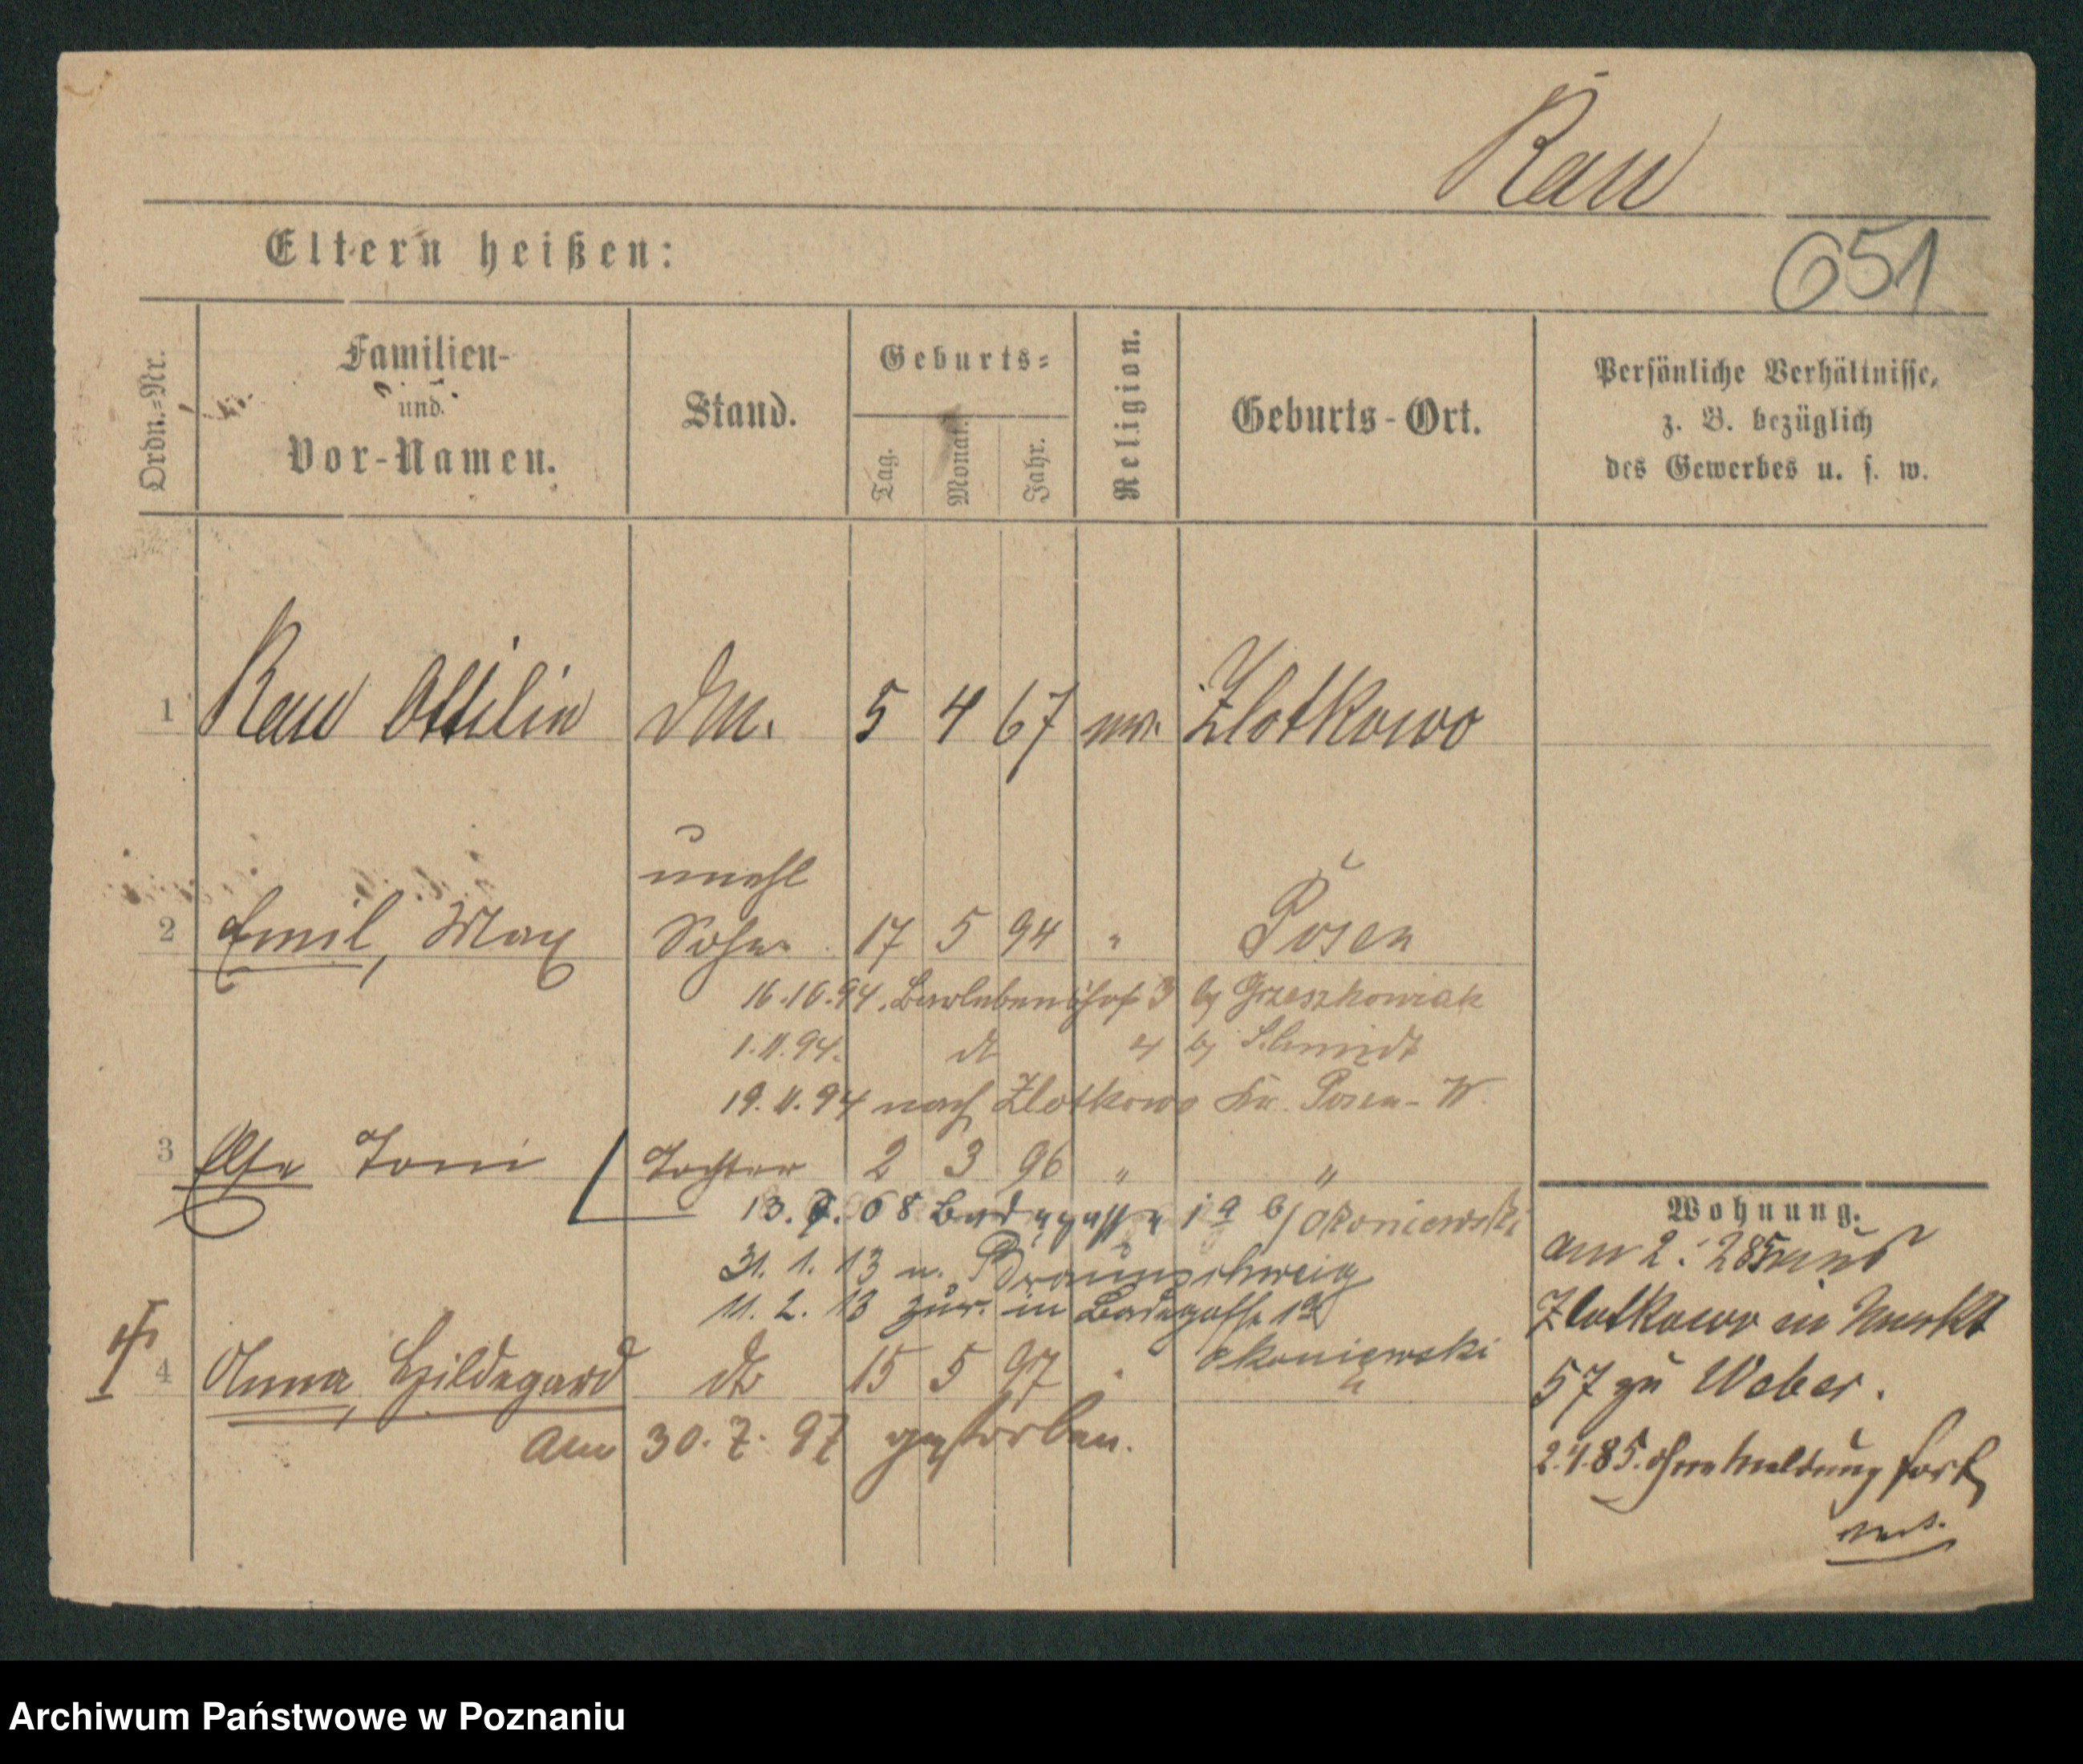 Rau
651
Eltern heißen:
Ordn.-Nr.
Familien-
und
Vor-Namen.
Stand.
Geburts-
Tag.
Monat.
Jahr.
Religion.
Geburts-Ort.
Persönliche Verhältnisse,
z. B. bezüglich
des Gewerbes u. s. w.
1 Rau Ottilie 5 4 67 Zlotkowo
unehl
2 Emil, Max Sohn 17 5 94 " Posen
16.10.94. Berlebenshof 3 by Grzeszkowiak
1.11.94. dt 4 by Schmidt
19.11.94 nach Zlotkowo Kr. Posen-W.
3 Else Toni Tochter 2 3 96 " "
13. 08 Badegasse 1a b/ Okoniewski
31. 1. 13 n. Braunschweig
11. 2. 13 zur. in Badegasse 1a
Okoniewski
4 Anna, Hildegard dto 15 5 97 "
am 30.7.97 gestorben.
Wohnung.
am 2. 285 aus
Zlotkowo in Markt
57 zu Weber.
2.4.85. ohne Meldung fort
Archiwum Państwowe w Poznaniu